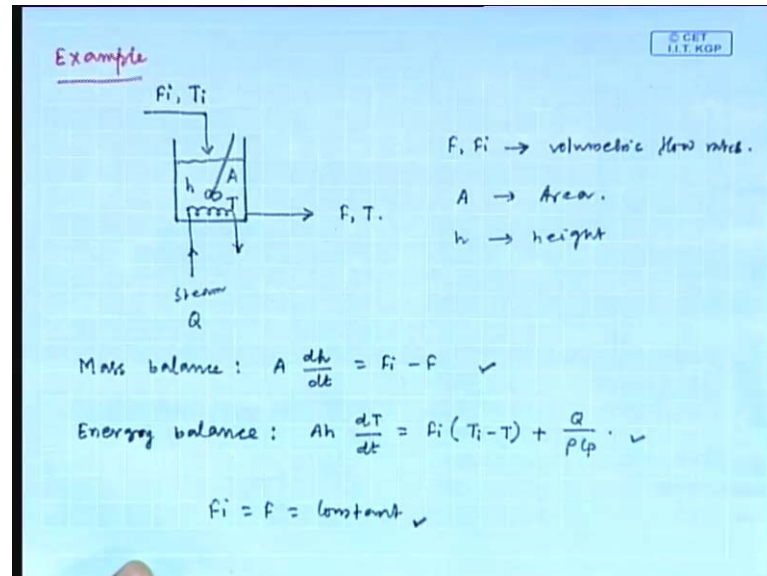 © CET
I.I.T. KGP
Example
Fi, Ti
h
A
T
F, T.
Steam
Q
F, Fi → volumetric flow rates.
A → Area.
h → height
Mass balance : A dh/dt = Fi - F ✓
Energy balance : Ah dT/dt = Fi (Ti - T) + Q/ρCp . ✓
Fi = F = Constant ✓